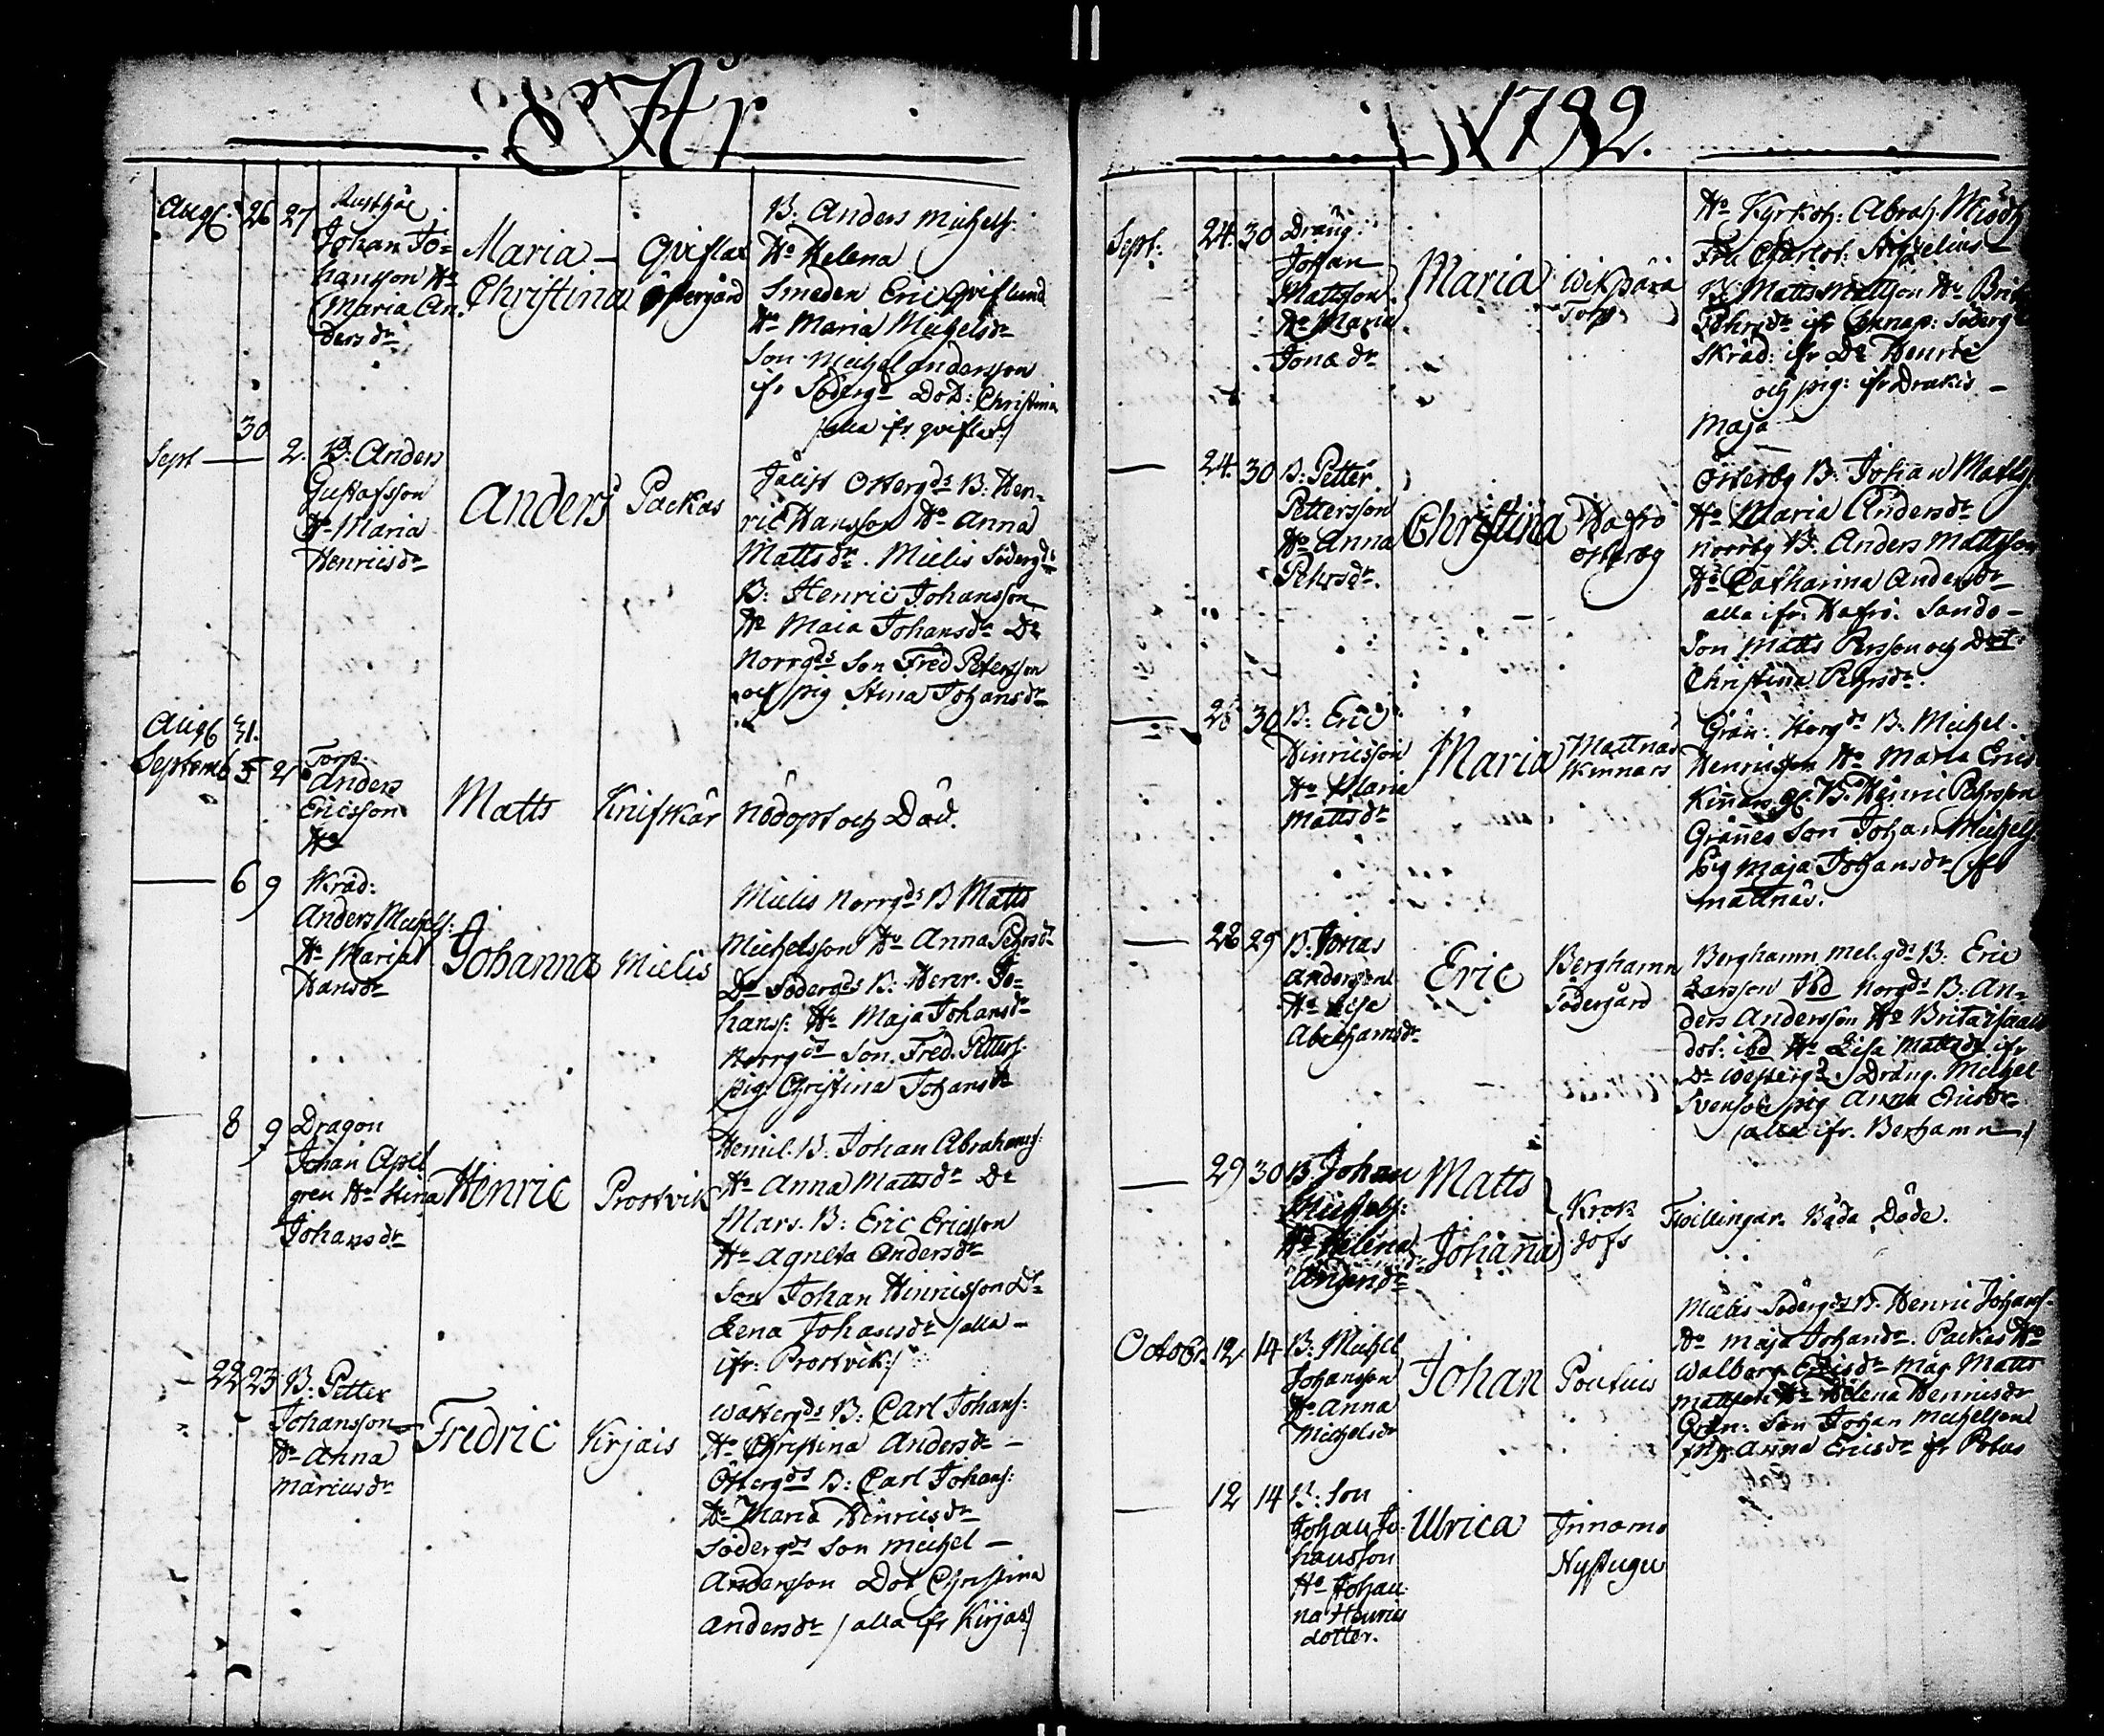 År
Aug. 26 27 Rusthål.
Johan Jo=
hansson Ho
Maria An,
dersdr
Maria
Christina
Qviflax
Östergård
B: Anders Michels:
Ho Helena
Smeden Eric Qviflund
Ho Maria Michelsdr
Son Michel Andersson
ifr Söderg. Dot: Christina
/alla ifr qviflax:/
30
Sept — 2. B: Anders
Gustafsson
Ho Maria
Henricsdr
Anders
Packas
Östergds B: Hen=
ric Hansson Ho Anna
Mattsdr. Mielis Södergds
B: Henric Johansson
Ho Maia Johansdr Do
Norrgds Son Fred Petersson
och pig Stina Johansdr
Aug 31.
Septemb 5 21 Torp.
Anders
Ericsson
Ho
Matts
Knifskär
Nödöpt och Död.
— 6 9 Skräd:
Anders Michels:
Ho Maria
Hansdr
Johanna
Mielis
Mielis Norrgds B Matts
Michelsson Ho Anna Pehrsdr
Do Södergds B: Henr. Jo=
hans: Ho Maja Johansdr
Norrgds Son. Fred. Petters:
pig Christina Johansdr
— 8 9 Dragon
Johan Apel
gren Ho Stina
Johansdr
Henric
Prostvik
Hemil. B. Johan Abrahams:
Ho Anna Mattsdr Do
Mars. B: Eric Ericsson
Ho Agneta Andersdr
Son Johan Hinricsson Dr
Lena Johansdr /alla —
ifr: Prostvik:/
— 22 23 B: Petter
Johansson
Ho Anna
Mariusdr
Fredric
Kirjais
Wästergds B: Carl Johans:
Ho Christina Andersdr —
Östergds B: Carl Johans:
Ho Maria Hinricsdr
Södergds Son Michel —
Andersson Dot Christina
Andersdr /alla ifr Kirjas:/
1792.
Sept: 24. 30 Dräng:
Johan
Mattsson.
Ho Maria
Jonædr
Maria
Wikpära
Torp
Ho Kyrkoh: Abrah:
Fru Charlot:
B: Matts Mattson Ho Brita
Pehrsdr ifr
Skräd: ifr Do Henric
och pig: ifr Drakis —
Maja
— 24. 30 B. Petter
Pettersson
Ho Anna
Pehrsdr.
Christina
Hafrö
Österby
Österby B. Johan Matts:
Ho Maria Andersdr
Norrby B. Anders Mattsson
Ho Catharina Andersdr
alla ifr: Hafrö. Sando —
Son Matts Persson och Dot
Christina Pehrsdr.
— 25 30 B: Eric
Hinricsson
Ho Maria
Mattsdr
Maria
Mattnäs
Kinnars
Grän: B. Michel
Henricsson Ho Maria Erics
Kinnars B. Henric Pehrsson
Grännes Son Johan Michels:
Pig Maja Johansdr ifr
Mattnäs.
— 28 29 B. Jonas
Anderson
Ho Lisa
Abrahamsdr
Eric
Berghamn
Södergård
Berghamn Mel.gds B: Eric
Larsson ibd Norgds B: An=
ders Andersson Ho Brita Isaacs
dot: ibd Ho Lisa Mattsdr ifr
Do Westergd. Dräng. Michel
Svenson pig Anna Ericsdr
/alla ifr. Berhamn:/
— 29 30 B. Johan
Michels:
Ho Helena
Andersdr
Matts
Johanna
Krok
Jofs
Twillingar. Båda Döde.
October. 12 14 B: Michel
Johansson
Ho Anna
Michelsdr
Johan
Pontuis
Mielis Södergds B. Henric Johans:
Ho Maja Johansdr. Packas Ho
Walborg Ericsdr Måg Matts
Mattson Ho Helena Henricsdr
Grän: Son Johan Michelson
pig: Anna Ericsdr ifr
— 12 14 B: Son
Johan Jo:
hansson
Ho Johan:
na Henrics
dotter.
Ulrica
Innamo
Nystugu